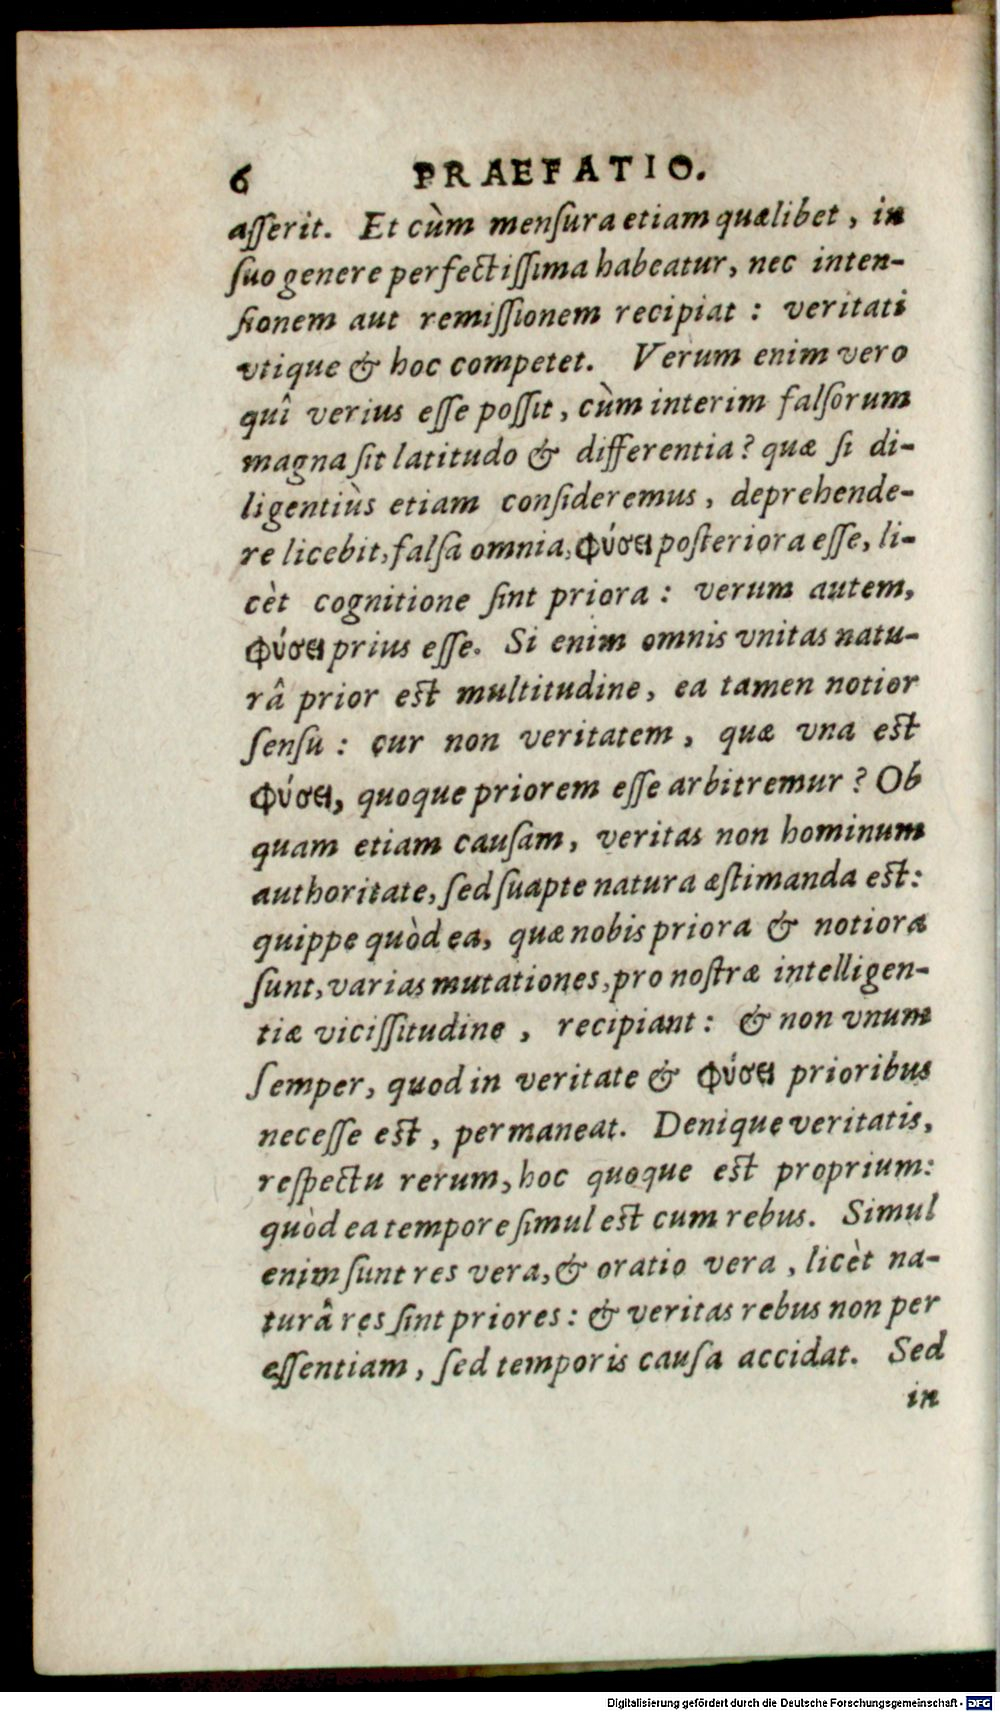 6 PRAEFATIO.
aſſerit. Et cùm menſura etiam quælibet, in
ſuo genere perfectiſſima habeatur, nec inten-
ſionem aut remiſſionem recipiat : veritati
vtique & hoc competet. Verum enim vero
quî verius eſſe poſſit, cùm interim falſorum
magna ſit latitudo & differentia? quæ ſi di-
ligentiùs etiam conſideremus, deprehende-
re licebit, falſa omnia, φύσει poſteriora eſſe, li-
cèt cognitione ſint priora : verum autem,
φύσει prius eſſe. Si enim omnis vnitas natu-
râ prior est multitudine, ea tamen notior
ſenſu : cur non veritatem, quæ vna est
φύσει, quoque priorem eſſe arbitremur? Ob
quam etiam cauſam, veritas non hominum
authoritate, ſed ſuapte natura æſtimanda est:
quippe quòd ea, quæ nobis priora & notiora
ſunt, varias mutationes, pro noſtræ intelligen-
tiæ viciſſitudine, recipiant : & non vnum
ſemper, quod in veritate & φύσει prioribus
neceſſe est, permaneat. Denique veritatis,
reſpectu rerum, hoc quoque est proprium:
quòd ea tempore ſimul est cum rebus. Simul
enim ſunt res vera, & oratio vera, licèt na-
turâ res ſint priores : & veritas rebus non per
eſſentiam, ſed temporis cauſa accidat. Sed
in
Digitalisierung gefördert durch die Deutsche Forschungsgemeinschaft - DFG